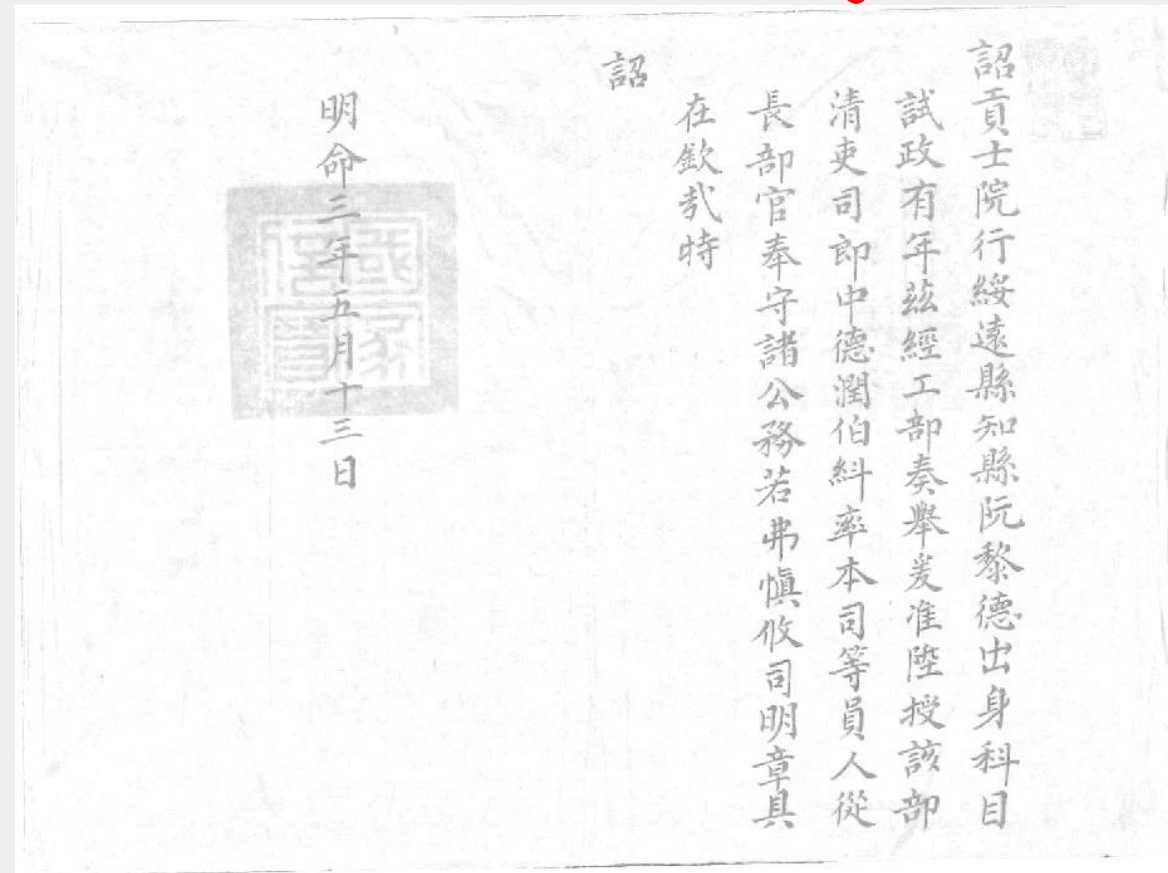 詔貢士院行綏遠縣知縣阮黎德出身科目
試政有年茲經工部奏舉爰准陞授該部
清吏司郎中德潤伯糾率本司等員人從
長部官奉守諸公務若弗慎攸司明章具
在欽哉特
詔
明命三年五月十三日